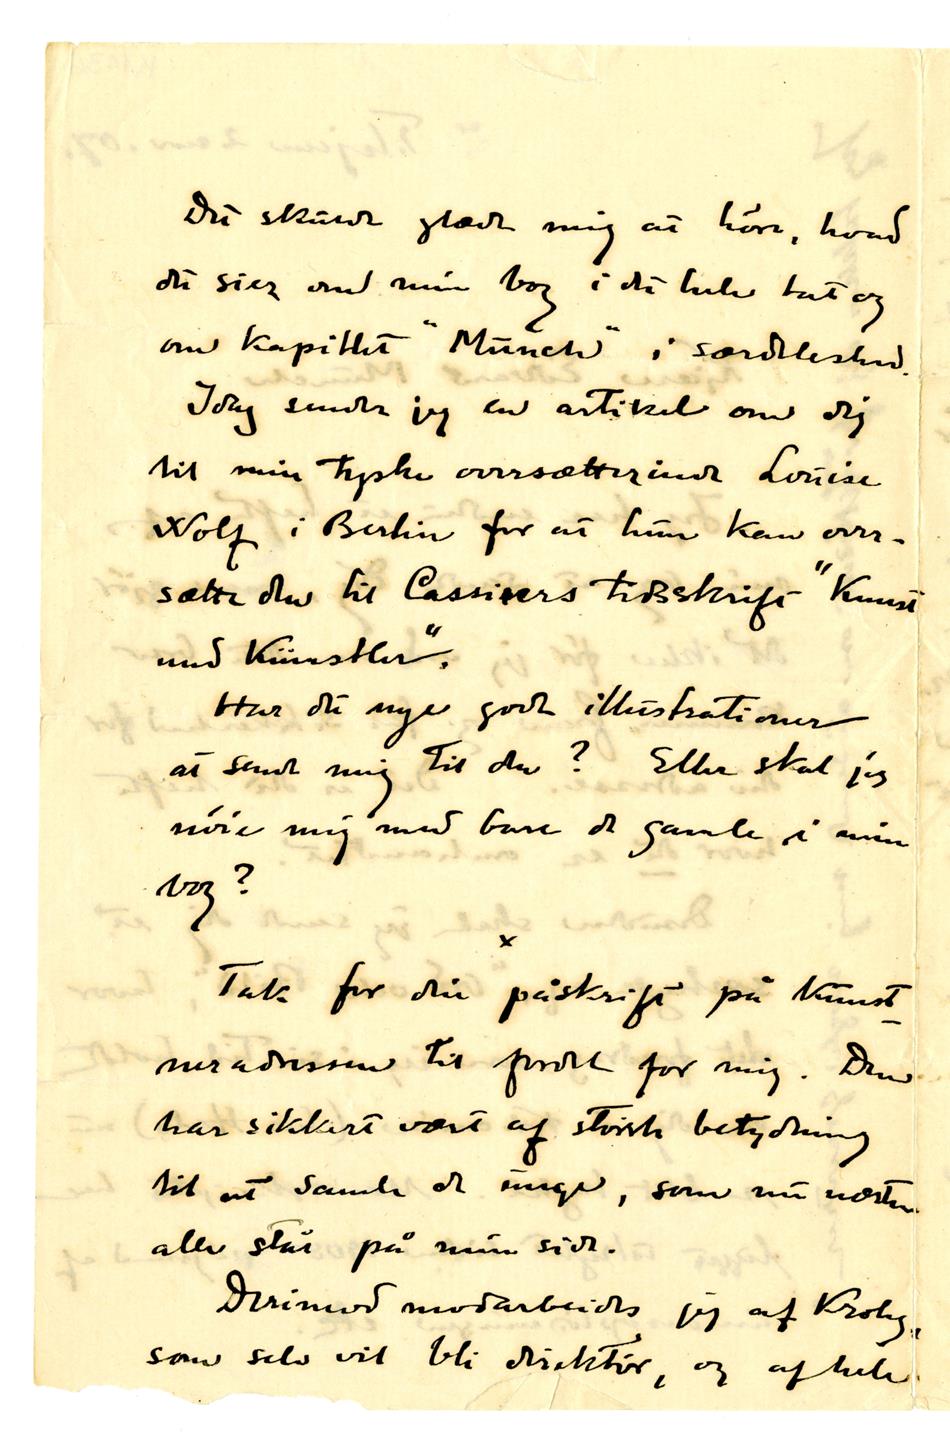 Det skulde glæde mig at høre, hvad
du sier om min bog i det hele tat og
om kapitlet "Munch" i særdeleshed.
Idag sender jeg en artikel om dig
til min tyske oversætterinde Louise
Wolf i Berlin for at hun kan over-
sætte den til Cassirers tidsskrift "Kunst
und Künstler".
Har du nye gode illustrationer
at sende mig til den? Eller skal jeg
nöie mig med bare de gamle i min
bog?
x
Tak for din påskrift på Kunst-
neradressen til fordel for mig. Den
har sikkert vært af störste betydning
til at samle de unge, som nu næsten
alle står på min side.
Derimod modarbeides jeg af Krohg,
som selv vil bli direktör, og af hele